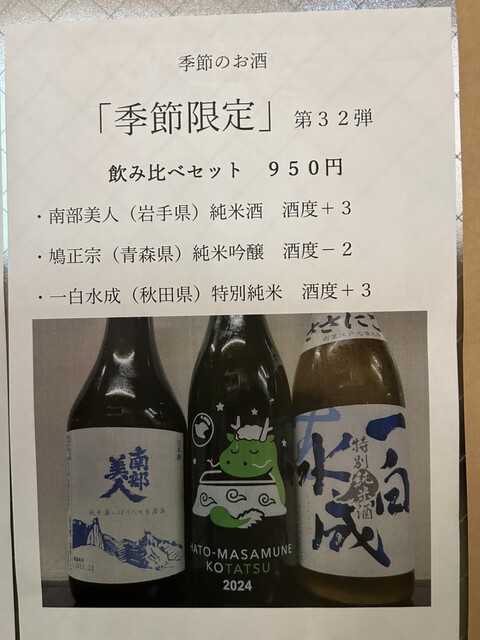 季節のお酒
「季節限定」 第３２弾
飲み比べセット ９５０円
・南部美人（岩手県）純米酒 酒度＋３
・鳩正宗（青森県）純米吟醸 酒度－２
・一白水成（秋田県）特別純米 酒度＋３
南部美人
日本酒
純米酒しぼりたて生原酒
HATO-MASAMUNE
KOTATSU
2024
ささにご
一白水成
特別純米酒